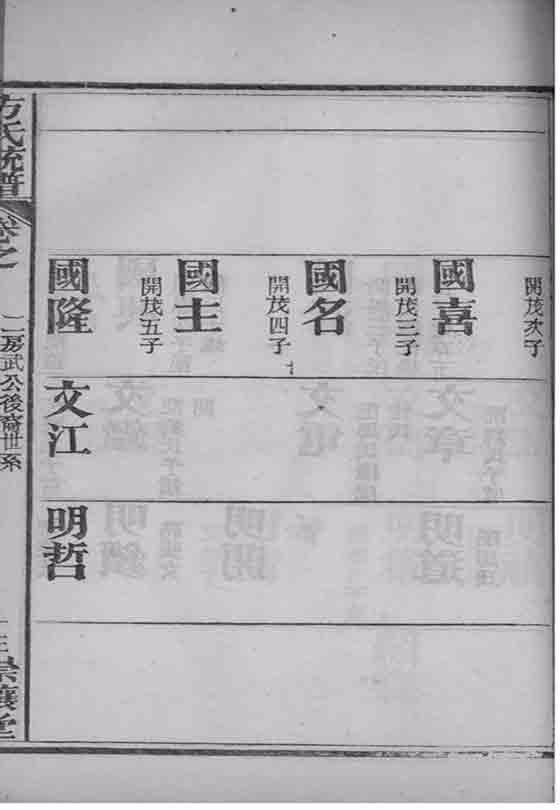 開茂次子
國喜
開茂三子
國名
開茂四子
國主
開茂五子
國隆
文江
明哲
方氏統譜
卷之
二房武公後裔世系